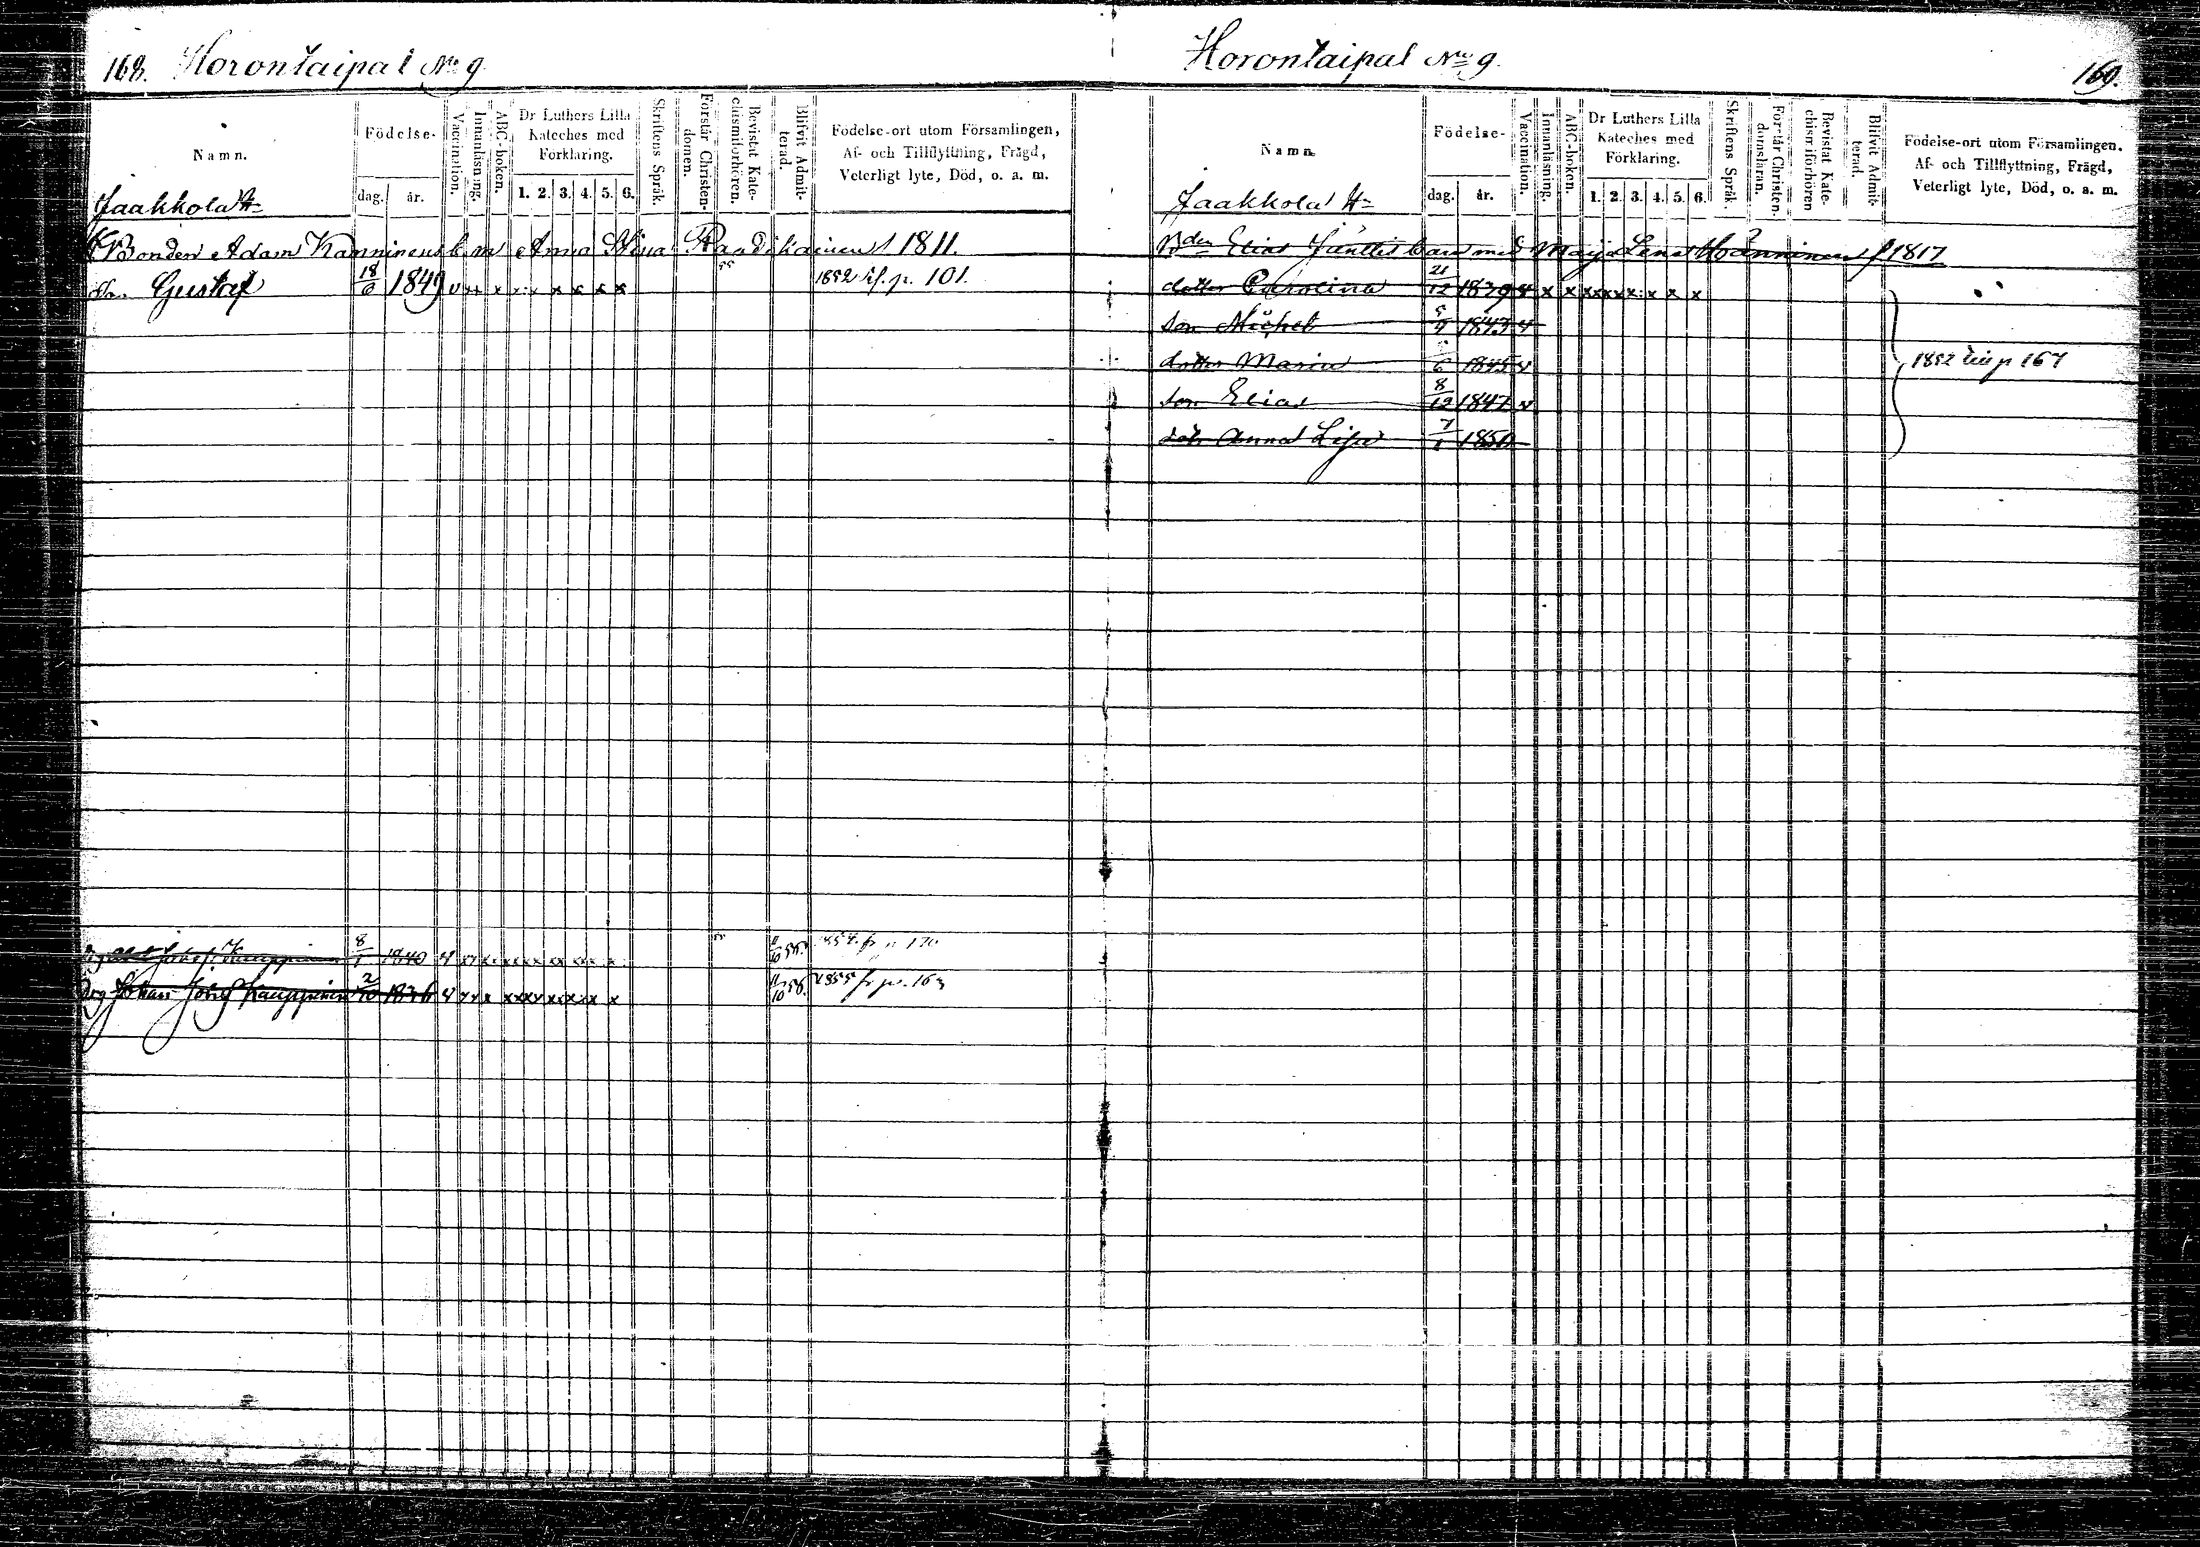 168. Horontaipal No 9
Namn.
Födelse-
dag. år.
Vaccination.
Innanläsning.
ABC-boken.
Dr Luthers Lilla Kateches med Förklaring.
1. 2. 3. 4. 5. 6.
Skriftens Språk.
Förstår Christen-domen.
Bevistat Kate-chismiförhören.
Blifvit Admit-terad.
Födelse-ort utom Församlingen,
Af- och Tillflyttning, Frägd,
Veterligt lyte, Död, o. a. m.
Jaakkola
Bonden Adam Kanninens b. m. Anna Stina 1811.
Sn. Gustaf 18/6 1849 v xx x x x x x x x 1852 p. 101.
8/1 1840
Johan Josef Kauppinen 2/10 11/10 56. 1855 fr p. 163
Horontaipal No 9.
169.
Namn.
Födelse-
dag. år.
Vaccination.
Innanläsning.
ABC-boken.
Dr Luthers Lilla Kateches med Förklaring.
1. 2. 3. 4. 5. 6.
Skriftens Språk.
Förstår Christen-domsläran.
Bevistat Kate-chismiförhören
Blifvit Admit-terad.
Födelse-ort utom Församlingen.
Af- och Tillflyttning, Frägd,
Veterligt lyte, Död, o. a. m.
Jaakkola
Bden Elias Jänttis barn med Maija Lena Hänninen f 1817
dotter Carolina 21/12 1839
son Michel 1843
dotter Maria 1845
son Elias 8/12 1847
1852 till p 167
dotr Anna Lisa 7/1 1850